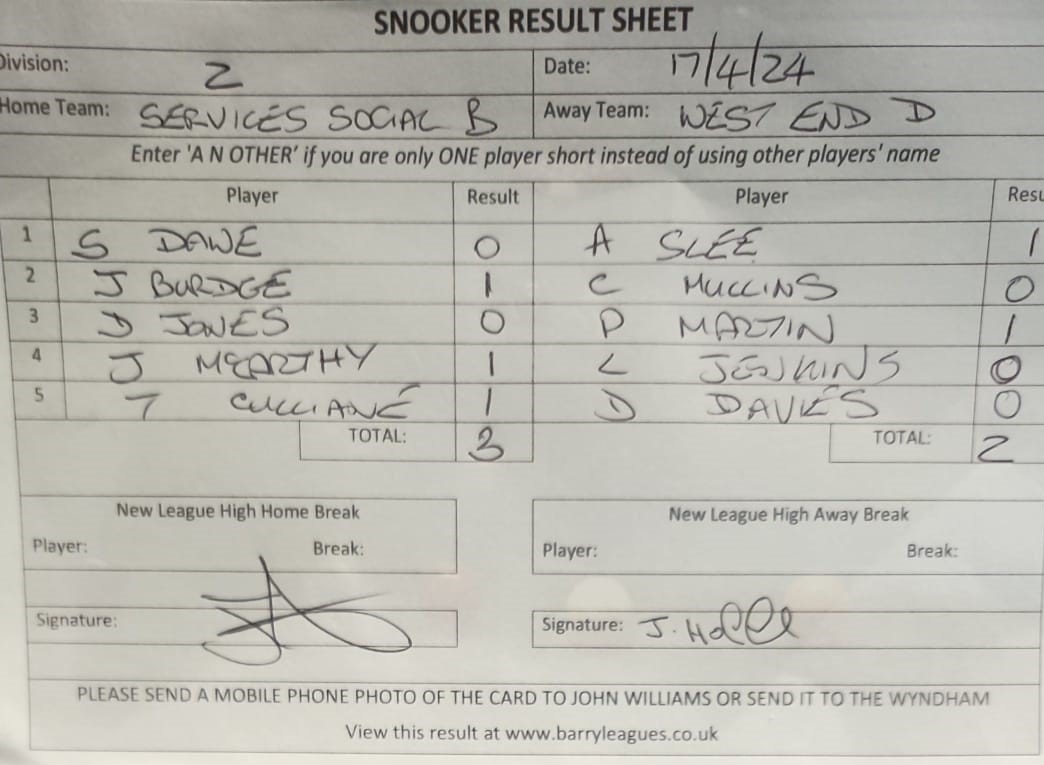 SNOOKER RESULT SHEET
Division: 2 Date: 17/4/24
Home Team: SERVICES SOCIAL B Away Team: WEST END D
Enter 'A N OTHER' if you are only ONE player short instead of using other players' name
Player Result Player Resu
1 S DAWE 0 A SLEE 1
2 J BURDGE 1 C MULLINS 0
3 D JONES 0 P MARTIN 1
4 J MCARTHY 1 L JENKINS 0
5 T CULLIANE 1 D DAVIES 0
TOTAL: 3 TOTAL: 2
New League High Home Break New League High Away Break
Player: Break: Player: Break:
Signature: Signature: J. Hole
PLEASE SEND A MOBILE PHONE PHOTO OF THE CARD TO JOHN WILLIAMS OR SEND IT TO THE WYNDHAM
View this result at www.barryleagues.co.uk